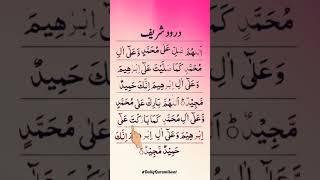 درود شریف
اَللّٰهُمَّ صَلِّ عَلٰى مُحَمَّدٍ وَّعَلٰٓى اٰلِ
مُحَمَّدٍ كَمَا صَلَّيْتَ عَلٰٓى اِبْرٰهِيْمَ
وَعَلٰٓى اٰلِ اِبْرٰهِيْمَ اِنَّكَ حَمِيْدٌ
مَّجِيْدٌ ؕ اَللّٰهُمَّ بَارِكْ عَلٰى مُحَمَّدٍ
وَّعَلٰٓى اٰلِ مُحَمَّدٍ كَمَا بَارَكْتَ عَلٰٓى
اِبْرٰهِيْمَ وَعَلٰٓى اٰلِ اِبْرٰهِيْمَ اِنَّكَ
حَمِيْدٌ مَّجِيْدٌ ؕ